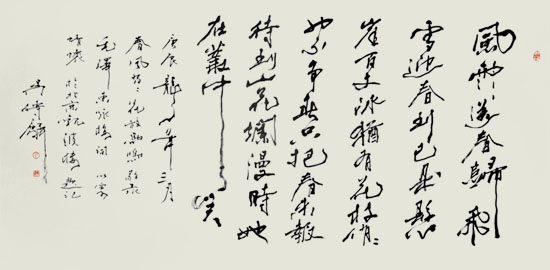 風雨送春歸飛
雪迎春到已是懸
崖百丈冰猶有花枝俏〻
也不争春只把春来報
待到山花爛漫時她
在叢中笑
庚辰龍年三月
春風
毛澤東咏梅詞
於北京